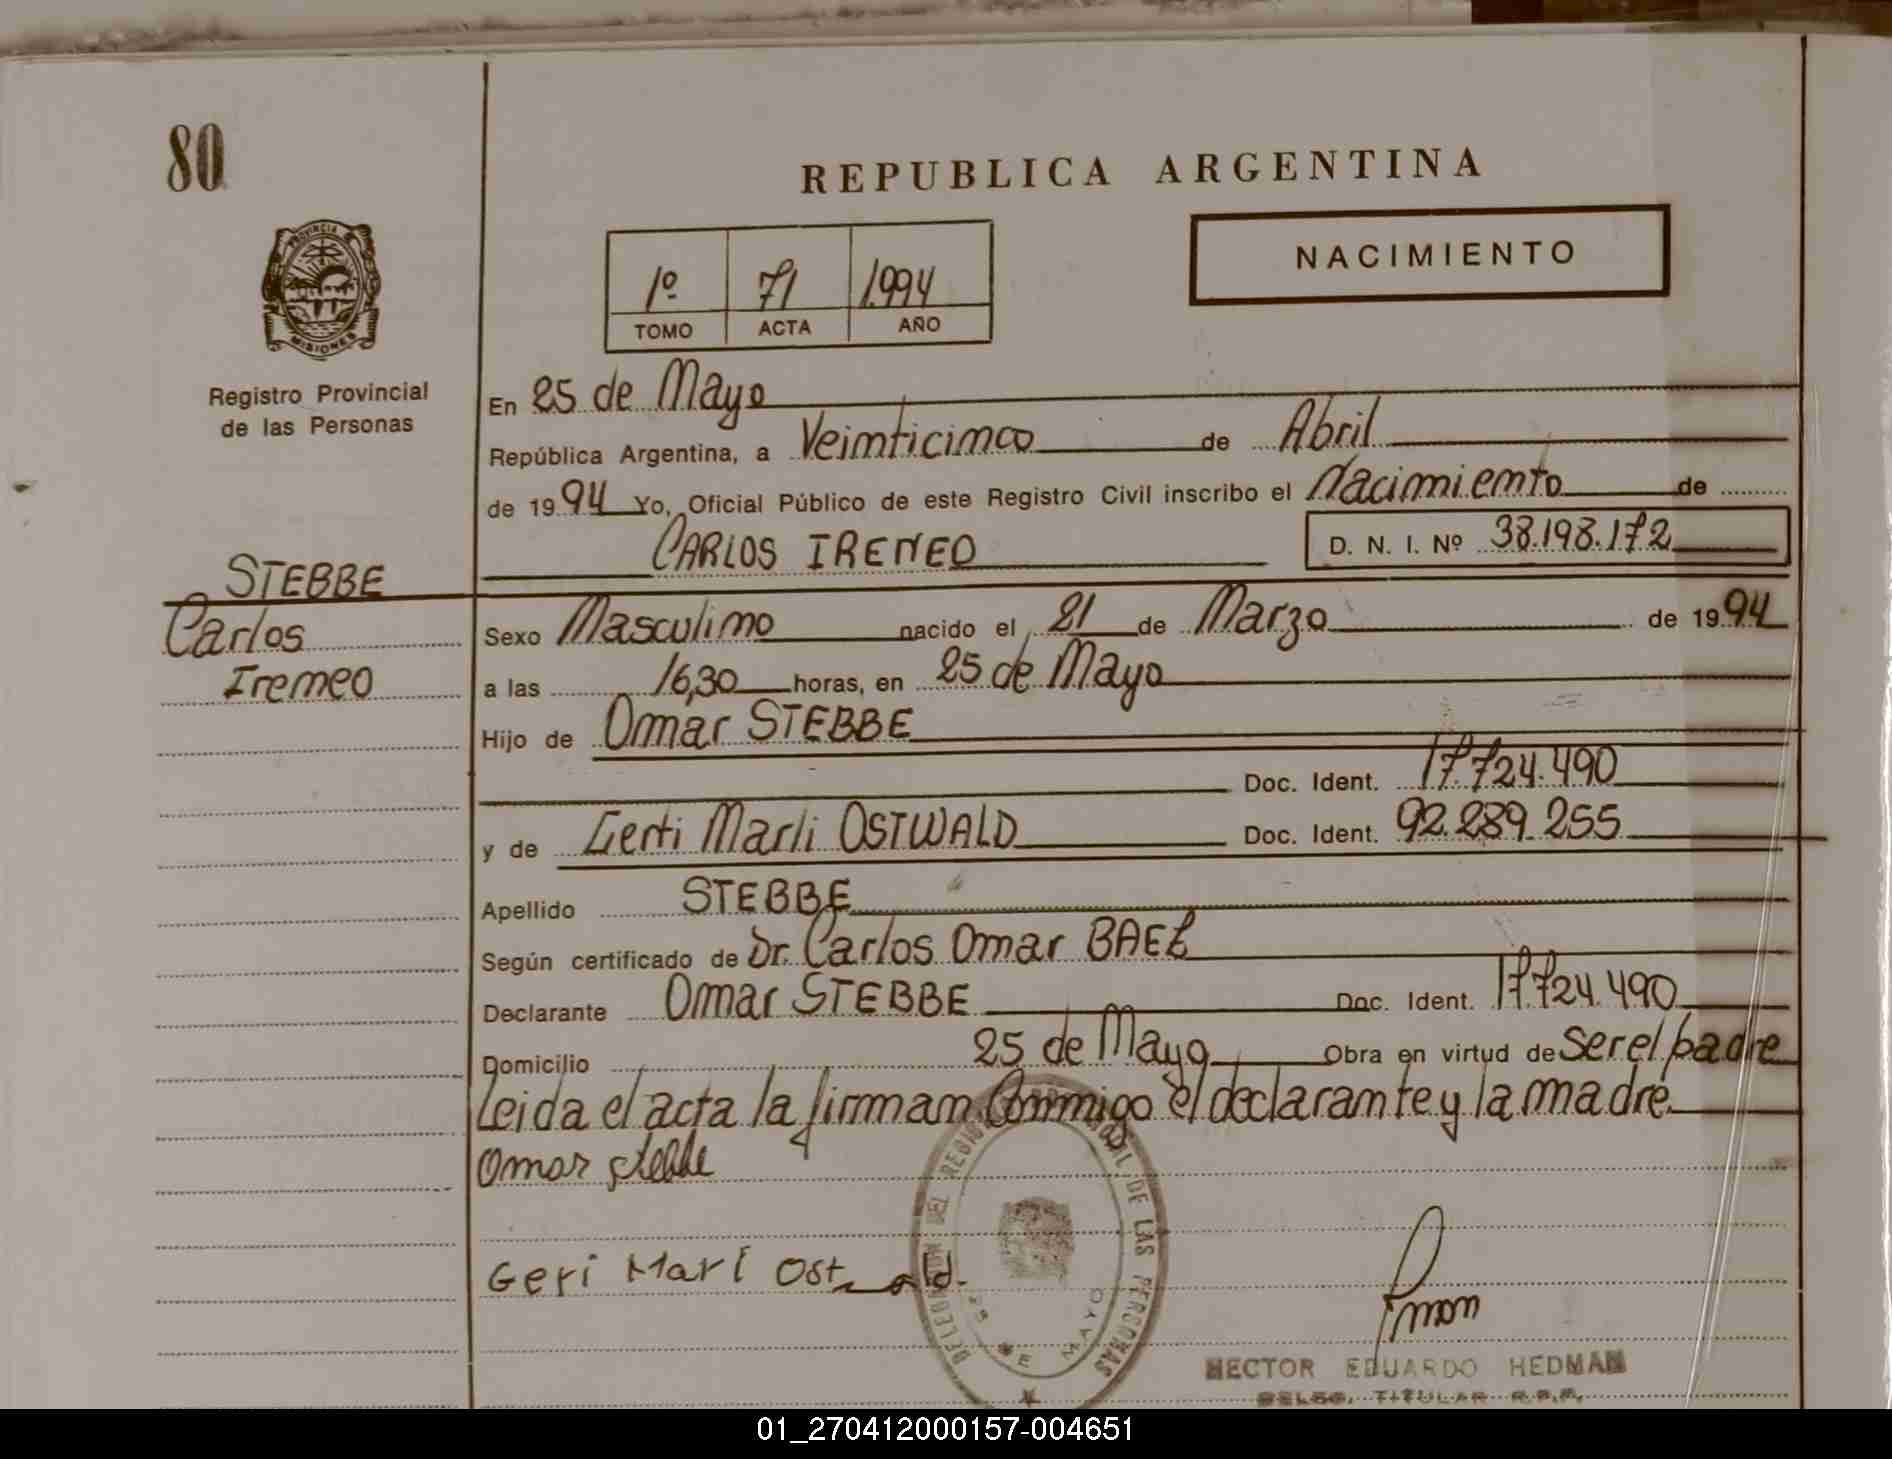 80
REPUBLICA ARGENTINA
NACIMIENTO
1º 71 1994
TOMO ACTA AÑO
PROVINCIA
MISIONES
Registro Provincial
de las Personas
En 25 de Mayo
República Argentina, a Veinticinco de Abril
de 1994 Yo, Oficial Público de este Registro Civil inscribo el Nacimiento de
CARLOS IRENEO D. N. I. Nº 38.198.172
STEBBE
Carlos
Ireneo
Sexo Masculino nacido el 21 de Marzo de 1994
a las 16,30 horas, en 25 de Mayo
Hijo de Omar STEBBE
Doc. Ident. 17.724.490
y de Gerti Marli OSTWALD Doc. Ident. 92.289.255
Apellido STEBBE
Según certificado de Dr. Carlos Omar BAEZ
Declarante Omar STEBBE Doc. Ident. 17.724.490
Domicilio 25 de Mayo Obra en virtud de ser el padre
Leida el acta la firman Conmigo el declarante y la madre
Omar Stebbe
Geri Marí
DEL REGISTRO DE LAS PERSONAS
25 DE MAYO
HECTOR EDUARDO HEDMAN
DELEG. TITULAR R.P.P.
01_270412000157-004651